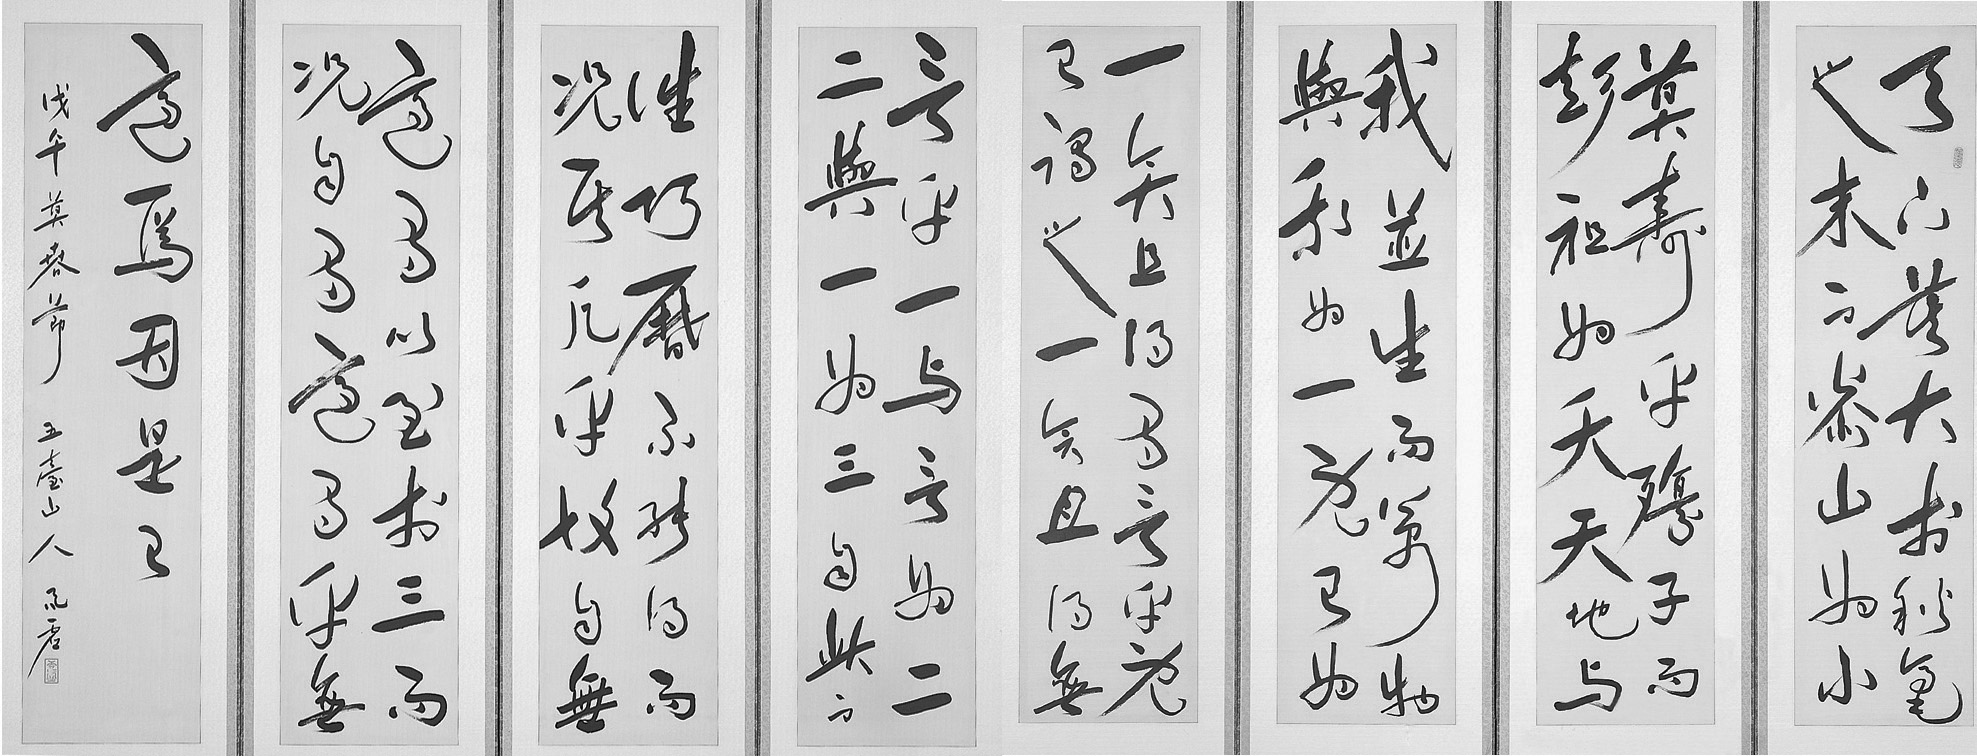 天下莫大於秋毫
之末而泰山為小
莫壽乎殤子而
彭祖為夭天地与
我並生而萬物
與我為一既已為
一矣且得有言乎既
已謂之一矣且得無
言乎一与言為二
二與一為三自此以
往巧曆不能得而
況其凡乎故自無
適有以至於三而
況自有適有乎無
適焉因是已
戊午莫春節 五臺山人